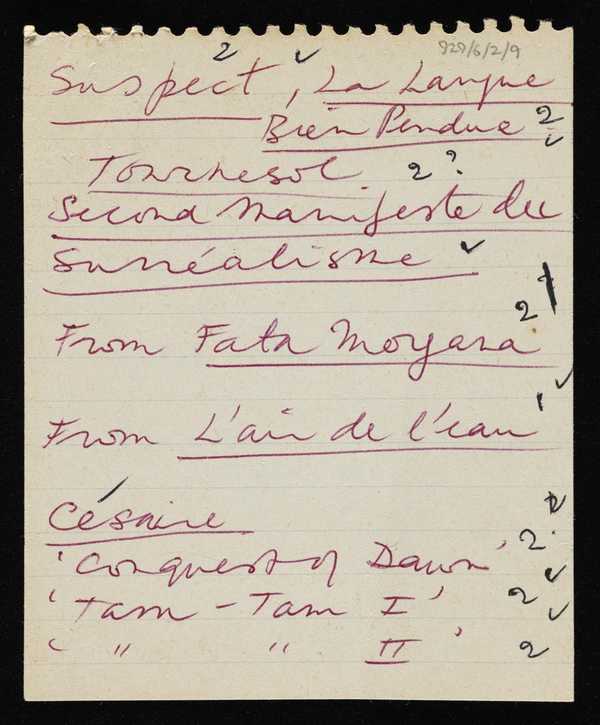 929/6/2/9
2 ✓
Suspect, La Langue
Bien Pendue 2 ✓
Tournesol 2 ?
Second Manifeste du
Surréalisme ✓
2
From Fata Morgana
✓
From L'air de l'eau
Césaire
'Conquest of Dawn' 2
✓
'Tam-Tam I' 2
✓
' " " II ' 2